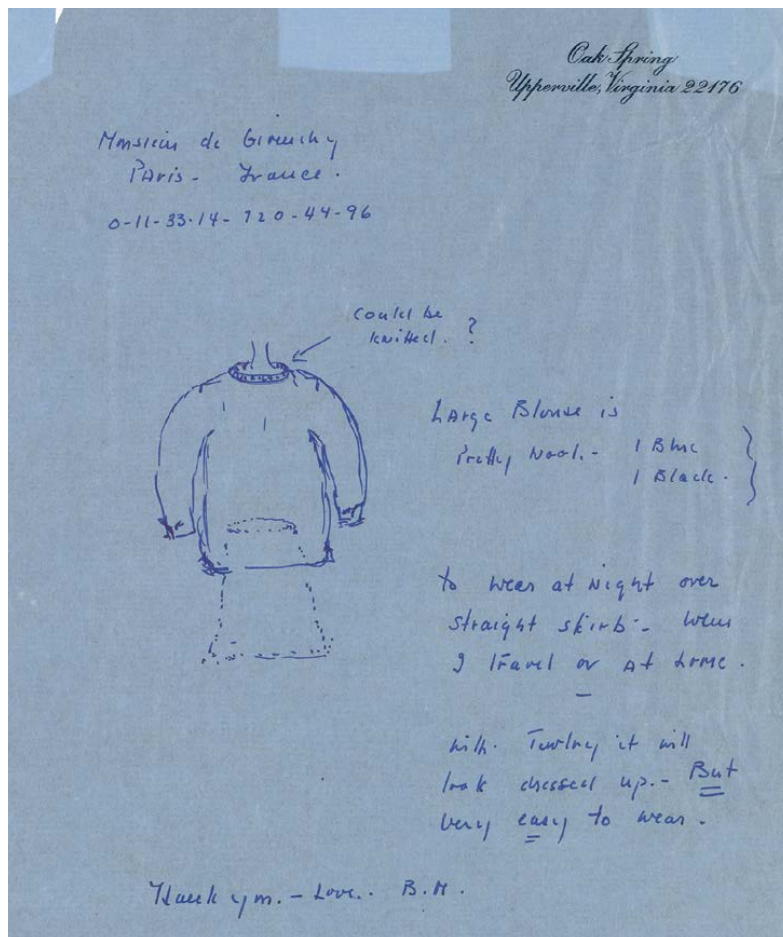 Oak Spring
Upperville, Virginia 22176
Monsieur de Givenchy
Paris - France.
0-11-33-14-720-44-96
Could be
knitted. ?
Large Blouse is
Pretty Wool. - 1 Blue
1 Black.
to wear at night over
straight skirts - when
I travel or at home.
with Jewlry it will
look dressed up. - But
very easy to wear.
Thank you. - Love.. B.M.